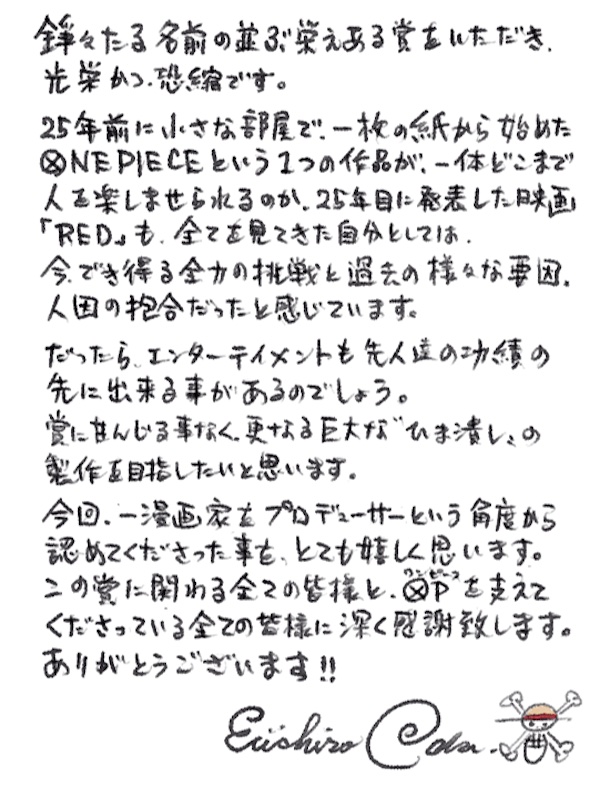 錚々たる名前の並ぶ栄えある賞をいただき、
光栄かつ恐縮です。
25年前に小さな部屋で、一枚の紙から始めた
ONE PIECEという1つの作品が、一体どこまで
人を楽しませられるのか、25年目に発表した映画
「RED」も、全てを見てきた自分としては、
今、でき得る全力の挑戦と過去の様々な要因、
人因の抱合だったと感じています。
だったら、エンターテイメントも先人達の功績の
先に出来る事があるのでしょう。
賞に甘んじる事なく、更なる巨大な〝ひま潰し〟の
製作を目指したいと思います。
今回、一漫画家をプロデューサーという角度から
認めてくださった事を、とても嬉しく思います。
この賞に関わる全ての皆様と、OP(ワンピース)を支えて
くださっている全ての皆様に深く感謝致します。
ありがとうございます!!
Eiichiro Oda.